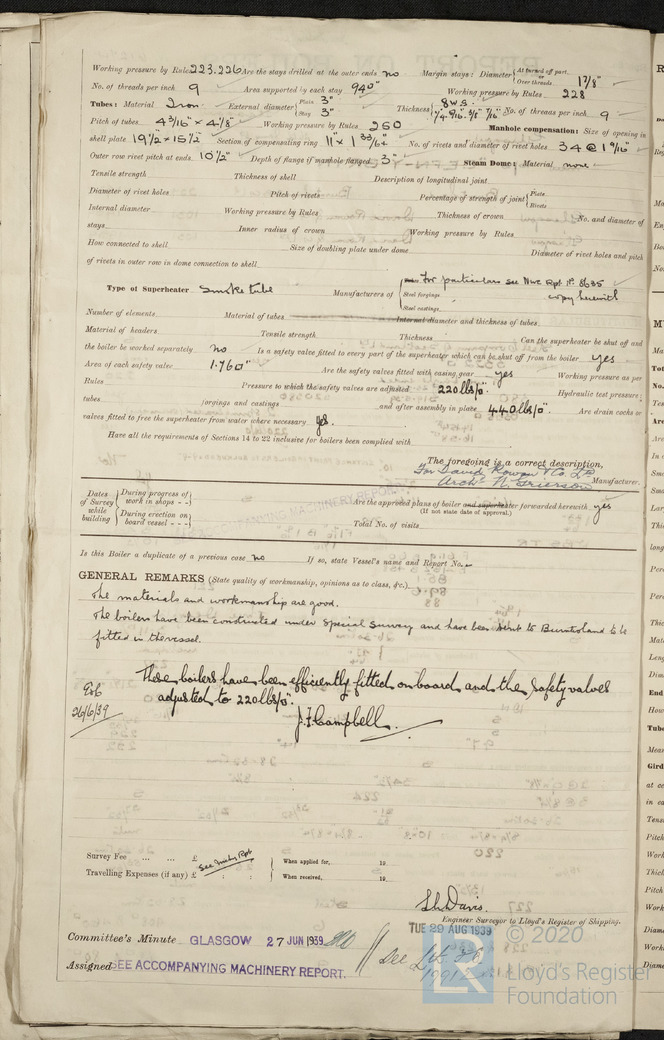 Working pressure by Rules 223.226 Are the stays drilled at the outer ends no Margin stays: Diameter { At turned off part, or Over threads 1 7/8"
No. of threads per inch 9 Area supported by each stay 940" Working pressure by Rules 228
Tubes: Material Iron External diameter { Plain 3" Stay 3" Thickness { 8 W.G. No. of threads per inch 9
Pitch of tubes 4 3/16" × 4 1/8" Working pressure by Rules 260 Manhole compensation: Size of opening in
shell plate 19 1/2" × 15 1/2" Section of compensating ring 11" × 1 33/64" No. of rivets and diameter of rivet holes 34 @ 1 9/16"
Outer row rivet pitch at ends 10 1/2" Depth of flange if manhole flanged 3" Steam Dome: Material none
Tensile strength Thickness of shell Description of longitudinal joint
Diameter of rivet holes Pitch of rivets Percentage of strength of joint { Plate Rivets
Internal diameter Working pressure by Rules Thickness of crown No. and diameter of
stays Inner radius of crown Working pressure by Rules
How connected to shell Size of doubling plate under dome Diameter of rivet holes and pitch
of rivets in outer row in dome connection to shell
Type of Superheater Smoke tube Manufacturers of { For particulars see Nwc Rpt No. 8635
Steel forgings copy herewith
Steel castings
Number of elements Material of tubes Internal diameter and thickness of tubes
Material of headers Tensile strength Thickness Can the superheater be shut off and
the boiler be worked separately no Is a safety valve fitted to every part of the superheater which can be shut off from the boiler yes
Area of each safety valve 1.760" Are the safety valves fitted with easing gear yes Working pressure as per
Rules Pressure to which the safety valves are adjusted 220 lbs/□" Hydraulic test pressure:
tubes forgings and castings and after assembly in place 440 lbs/□" Are drain cocks or
valves fitted to free the superheater from water where necessary yes.
Have all the requirements of Sections 14 to 22 inclusive for boilers been complied with
The foregoing is a correct description,
For David Rowan & Co. Ld
Archd W Grierson Manufacturer.
Dates of Survey while building { During progress of work in shops - - Are the approved plans of boiler and superheater forwarded herewith yes
(If not state date of approval.)
During erection on board vessel - - - Total No. of visits
Is this Boiler a duplicate of a previous case no If so, state Vessel's name and Report No. -
GENERAL REMARKS (State quality of workmanship, opinions as to class, &c.)
The materials and workmanship are good.
The boilers have been constructed under special survey and have been sent to Burntisland to be
fitted in the vessel.
These boilers have been efficiently fitted on board and the safety valves
adjusted to 220 lbs/□".
26/6/39
J. F. Campbell.
Survey Fee ... ... £ See Mchy Rpt When applied for, 19
Travelling Expenses (if any) £ : : When received, 19
L. Davis.
Engineer Surveyor to Lloyd's Register of Shipping.
TUE 29 AUG 1939
Committee's Minute GLASGOW 27 JUN 1939
Assigned SEE ACCOMPANYING MACHINERY REPORT.
© 2020
Lloyd's Register
Foundation